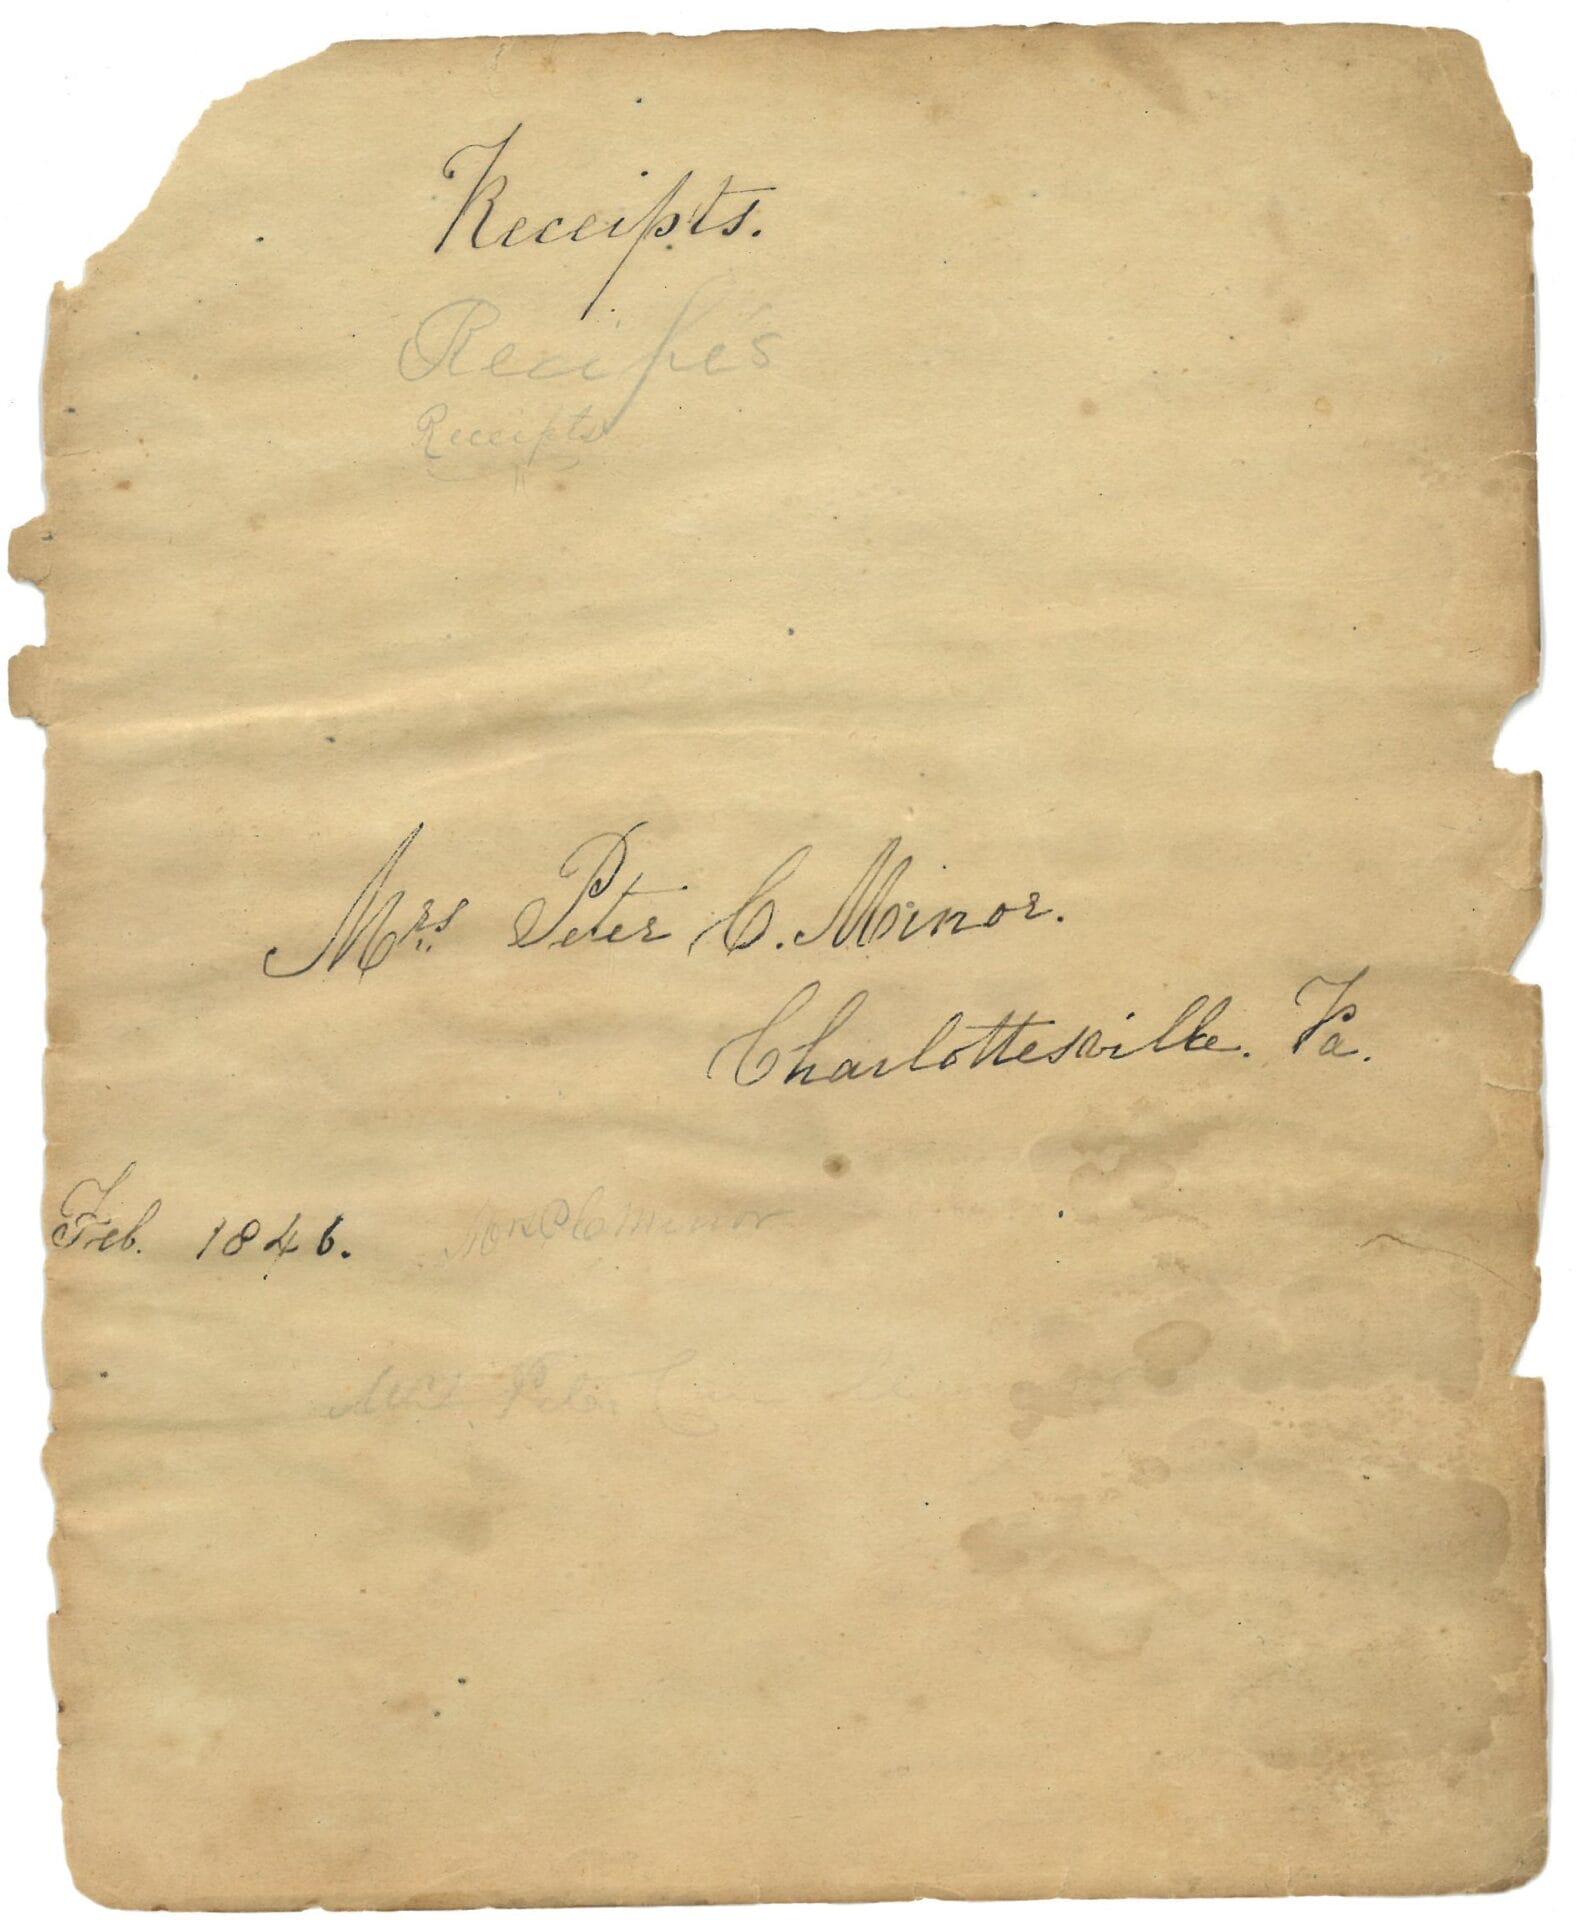 Receipts.
Recipes
Receipts
Mrs Peter C. Minor.
Charlottesville. Va.
Feb. 1846.
Minor
Mrs Peter